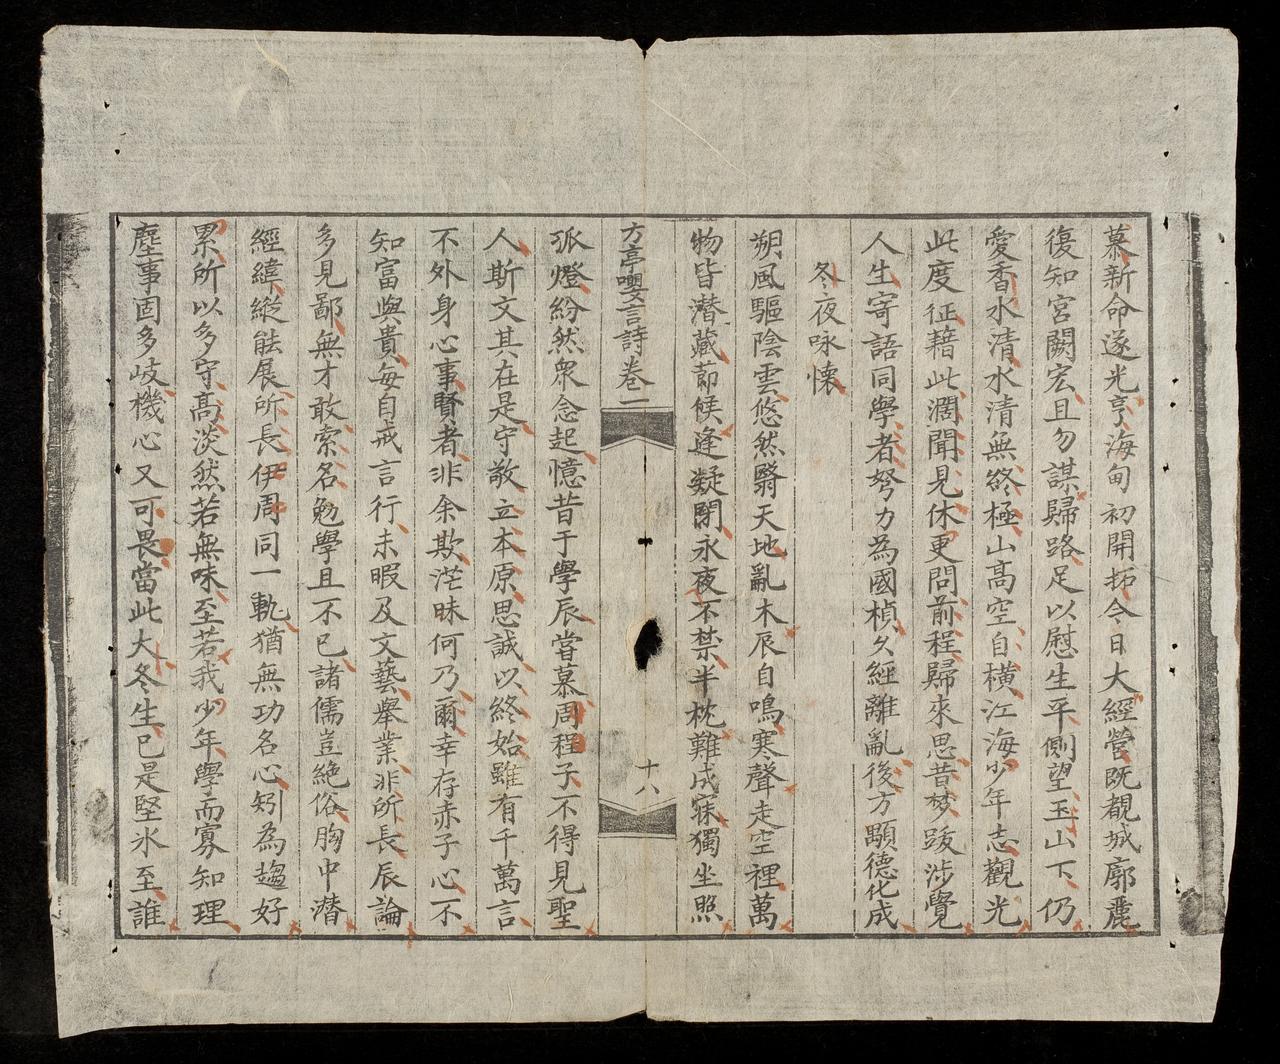 慕新命遂光亨海甸初開拓今日大經營既覩城廓麗
復知宮闕宏且勿謀歸路足以慰生平側望玉山下仍
愛香水清水清無終極山高空自橫江海少年志觀光
此度征藉此濶聞見休更問前程歸來思昔梦跋涉覺
人生寄語同學者努力為國楨久經離亂後方顯德化成
冬夜咏懐
朔風驅陰雲悠然翳天地亂木辰自鳴寒聲走空裡萬
物皆潛藏節候逢凝閉永夜不禁半枕難成寐獨坐照
方亭嚶言詩卷一
十八
孤燈紛然衆念起憶昔于學辰嘗慕周程子不得見聖
人斯文其在是守敬立本原思誠以終始雖有千萬言
不外身心事賢者非余欺茫昧何乃爾幸存赤子心不
知富與貴每自戒言行未暇及文藝舉業非所長辰論
多見鄙無才敢索名勉學且不已諸儒豈絶俗胸中潛
經緯縱能展所長伊周同一軌猶無功名心矧為趨好
累所以多守高淡然若無味至若我少年學而寡知理
塵事固多岐機心又可畏當此大冬生已是堅氷至誰